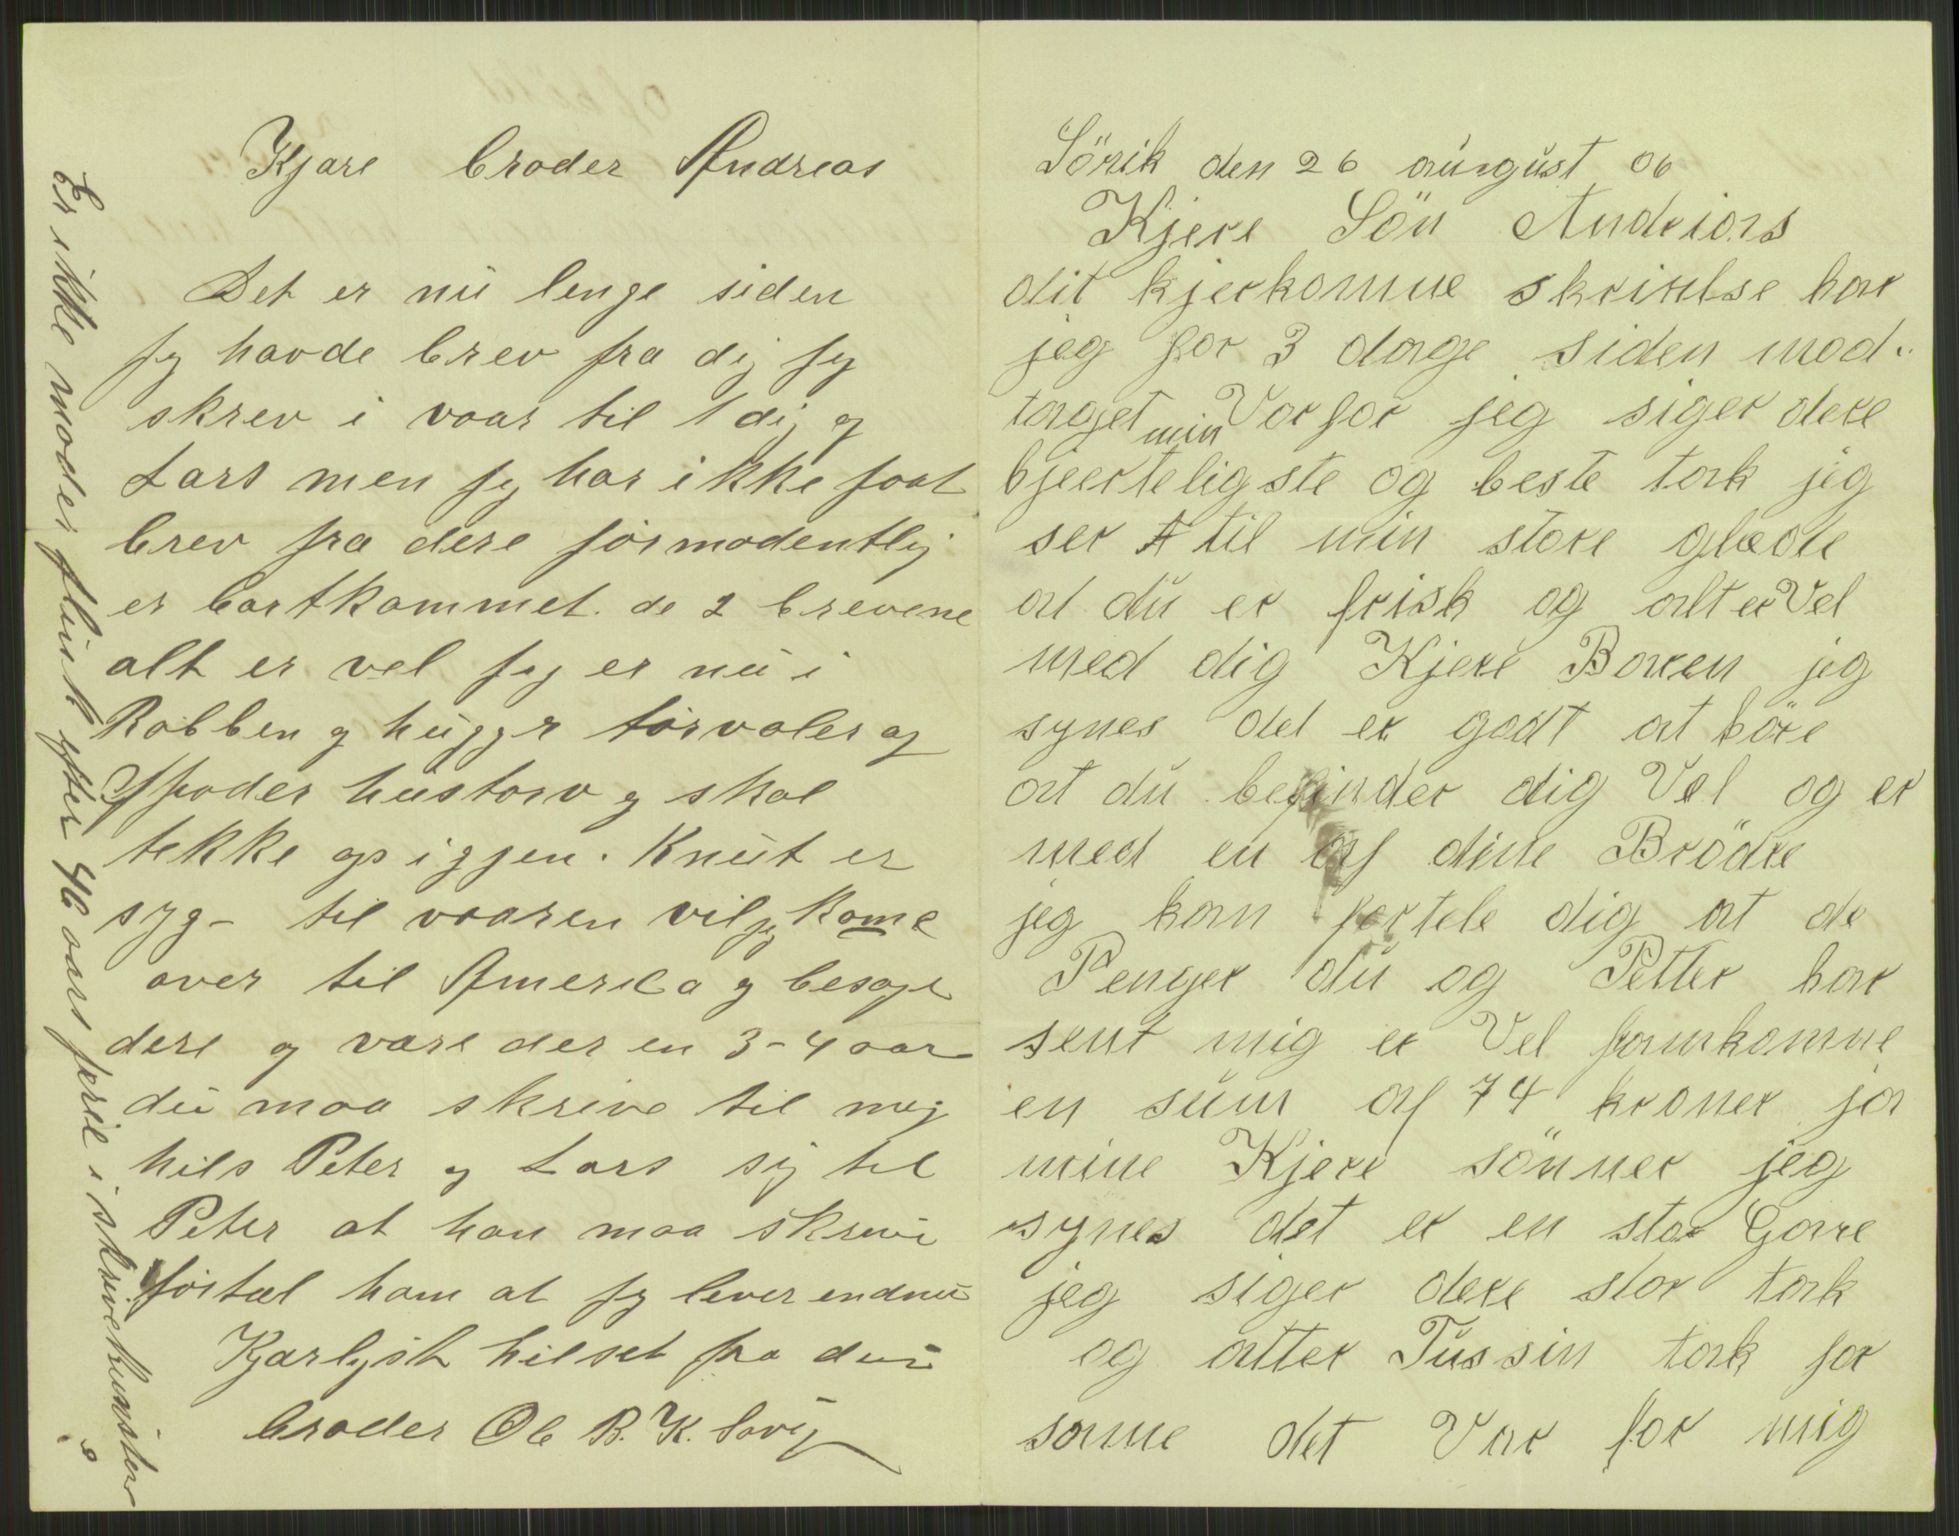 Kjære broder Andreas
Det er nu lenge siden
jeg havde brev fra dig jeg
skrev i vaar til 1 dig og
Lars men jeg har ikke faat
brev fra dere formodentlig
er bortkommet de 2 brevene
alt er vel jeg er nu i
Robben og hugger torvoler og
foder hustorv og skal
tekke op igjen. Knut er
syg - til vaaren vil jeg kome
over til America og besøge
dere og være der en 3-4 aar
du maa skrive til mig
hils Peter og Lars sig til
Peter at han maa skrive
fortæl ham at jeg lever endnu
Kjærligst hilset fra din
broder Ole B. K. Søvig
Er ikke moder flink efter 46 aars ferie i skrivekunsten?
Sörik den 26 aúrgúst 06
Kjere Sön Andrias
dit kjerkomne skrivelse har
jeg for 3 dage siden mod-
taget Vorfor jeg siger dere
min
hjerteligste og beste tak jeg
ser til min store glæde
at dú er frisk og alt er Vel
med dig Kjere Baren jeg
synes det er godt at höre
at dú befinder dig Vel og er
med en af dine Brödre
jeg kan fortele dig at de
Penger dú og Petter har
sent mig er Vel framkomne
en súm af 74 kroner ja
mine Kjere sönner jeg
synes det er en stor Gave
jeg siger dere stor tak
og atter Tússin tak for
same det Var for mig